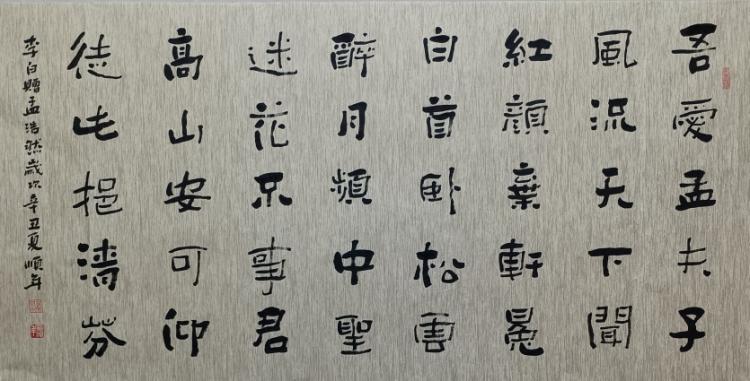 吾愛孟夫子
風流天下聞
紅顔棄軒冕
白首臥松雲
醉月頻中聖
迷花不事君
高山安可仰
徒此挹清芬
李白贈孟浩然歲次辛丑夏順年